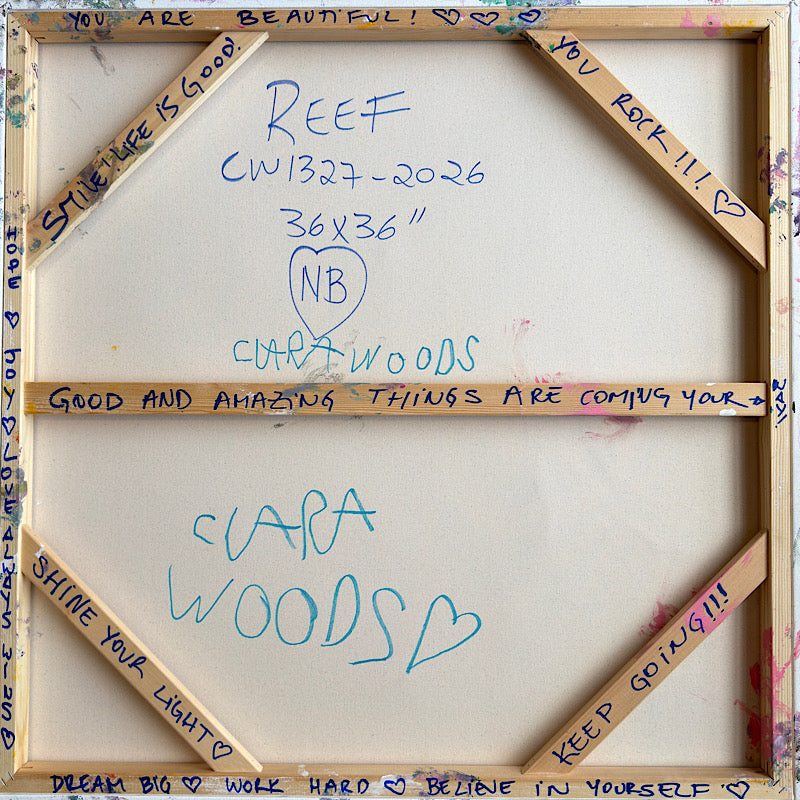 YOU ARE BEAUTIFUL! ♡ ♡ ♡
SMILE! LIFE IS GOOD!
YOU ROCK!!! ♡
REEF
CW1327-2026
36X36"
NB
CLARA WOODS
GOOD AND AMAZING THINGS ARE COMING YOUR →
WAY!
HOPE ♡ JOY ♡ LOVE ALWAYS WINS ♡
CLARA
WOODS ♡
SHINE YOUR LIGHT ♡
KEEP GOING!!!
DREAM BIG ♡ WORK HARD ♡ BELIEVE IN YOURSELF ♡